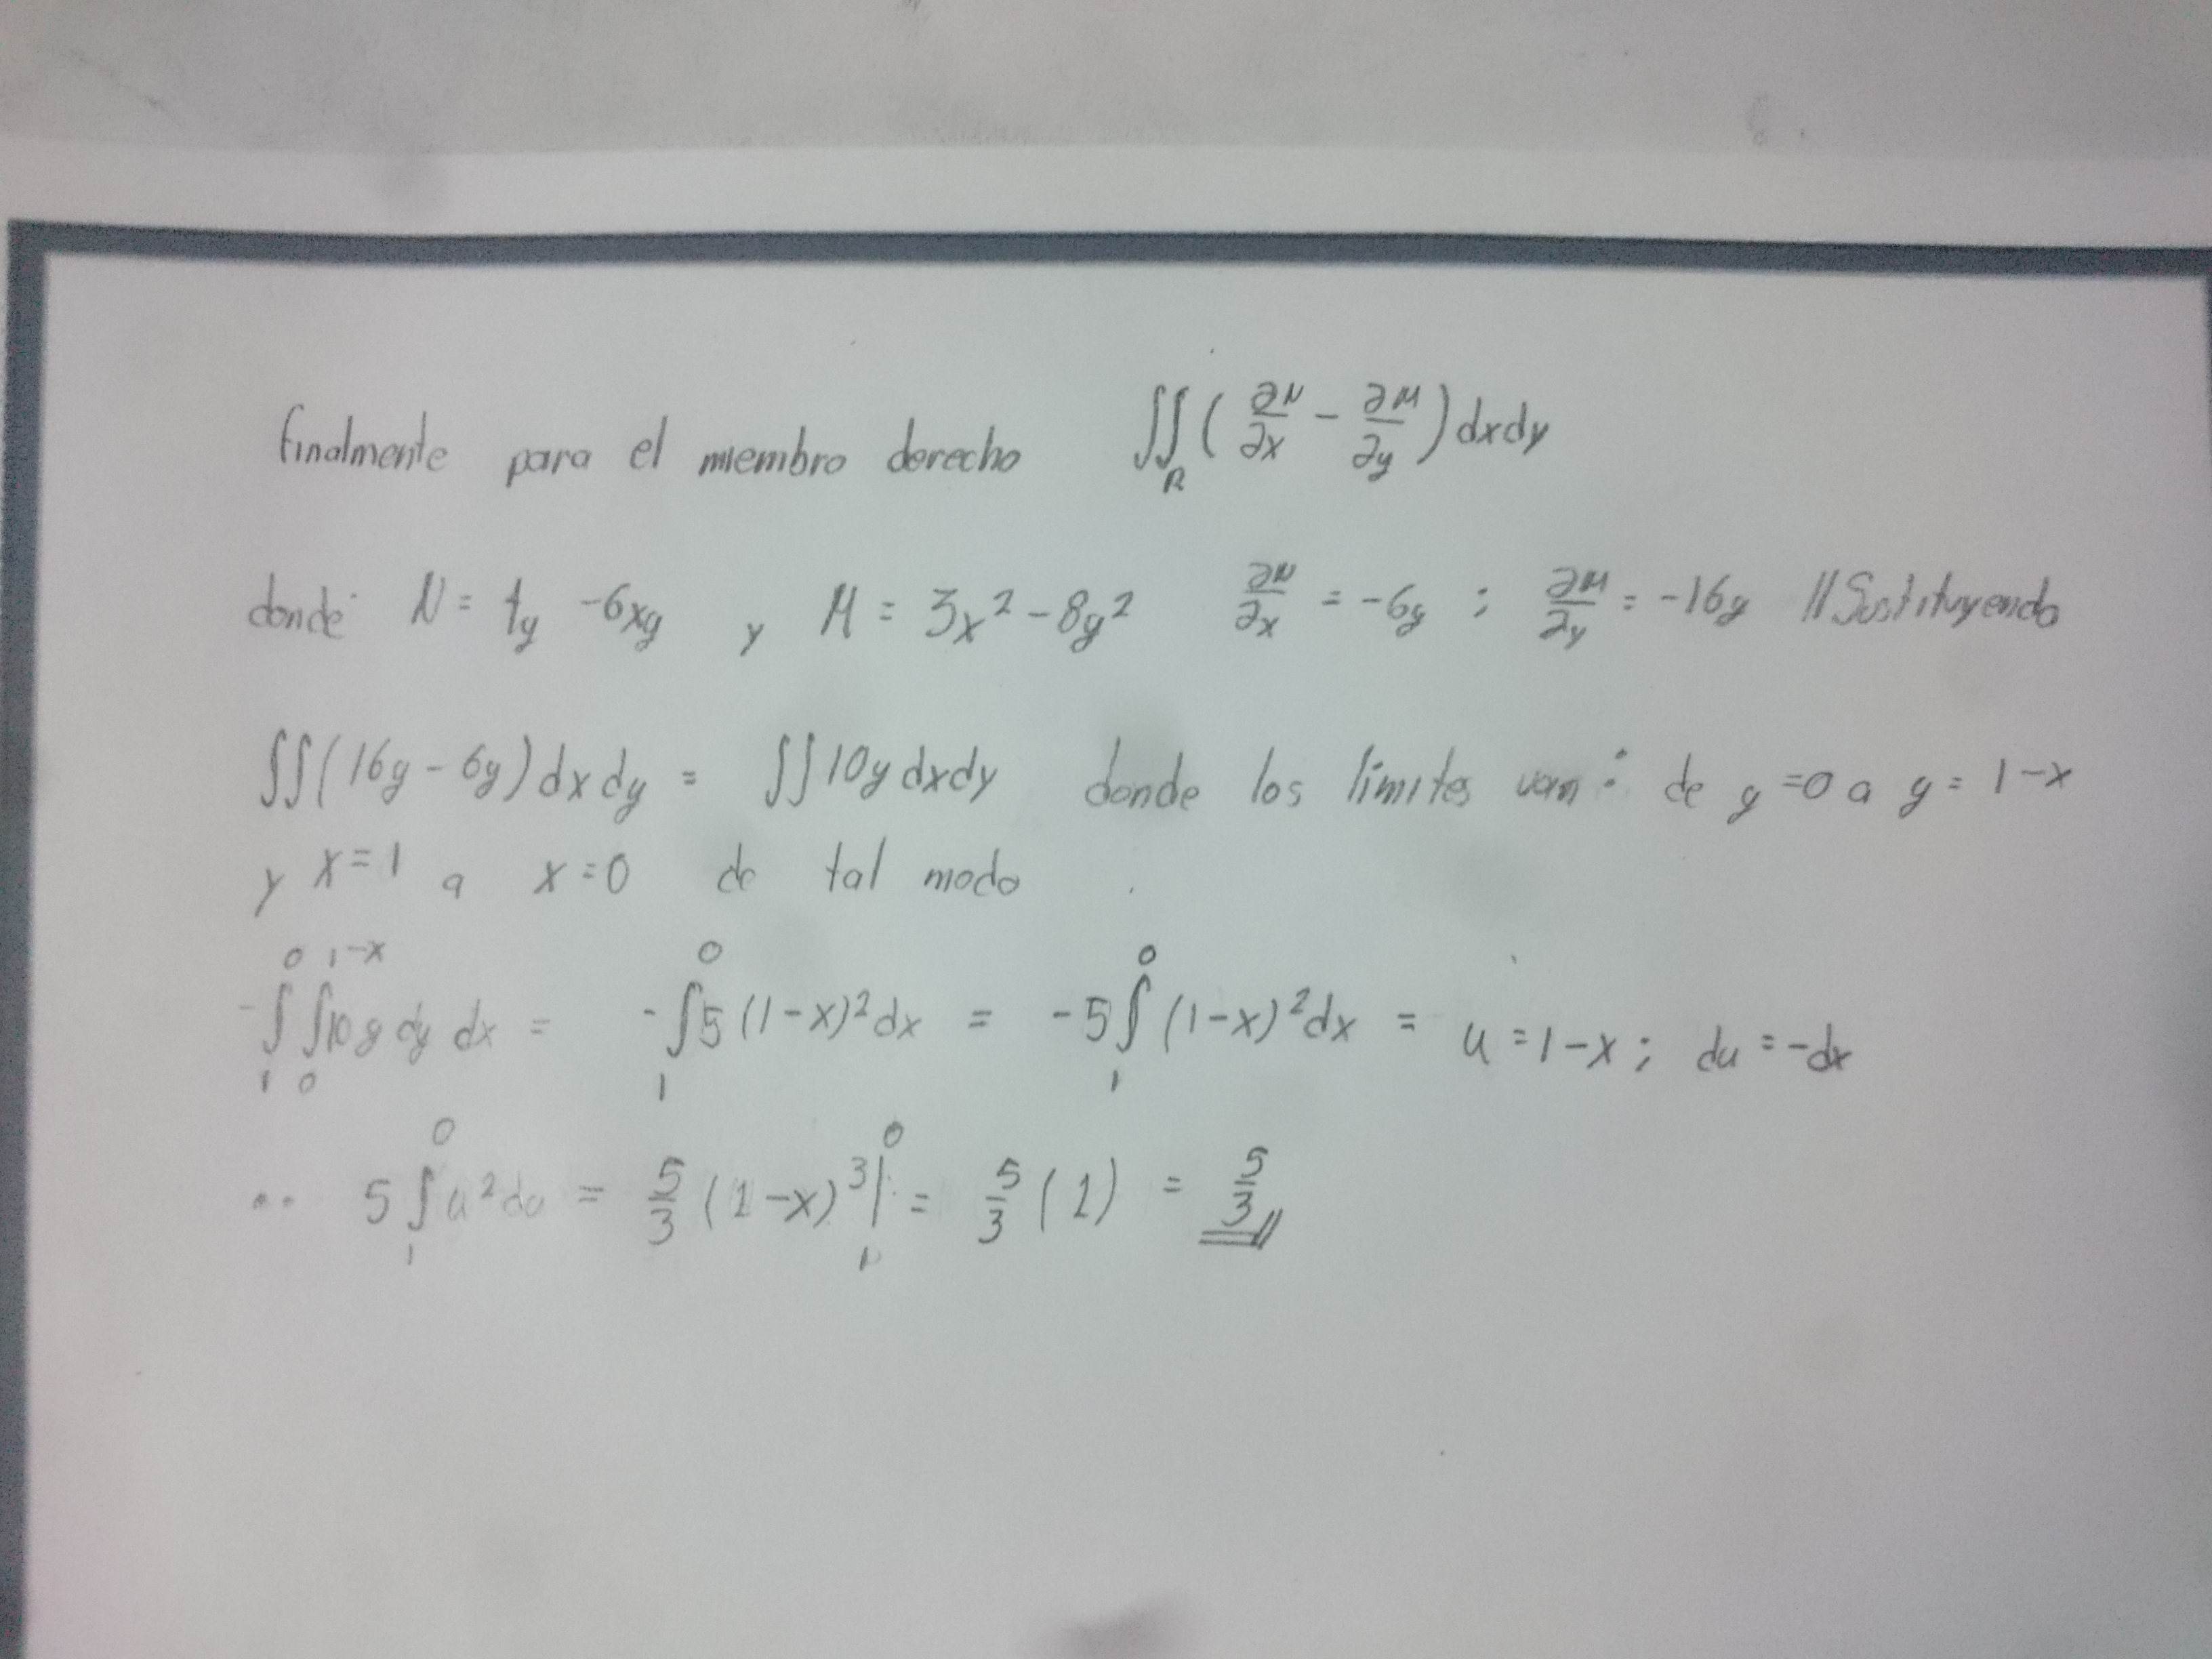 finalmente para el miembro derecho ∬_R (∂N/∂x − ∂M/∂y) dxdy
donde N = 4y − 6xy y M = 3x² − 8y² ∂N/∂x = −6y ; ∂M/∂y = −16y // Sustituyendo
∬(16y − 6y)dxdy = ∬10y dxdy donde los limites van: de y=0 a y=1−x
y x=1 a x=0 de tal modo
−∫₁⁰∫₀^{1−x} 10y dy dx = −∫₁⁰ 5(1−x)²dx = −5∫₁⁰(1−x)²dx = u=1−x; du=−dx
∴ 5∫₁⁰ u²du = 5/3 (1−x)³|₁⁰ = 5/3 (1) = 5/3 //